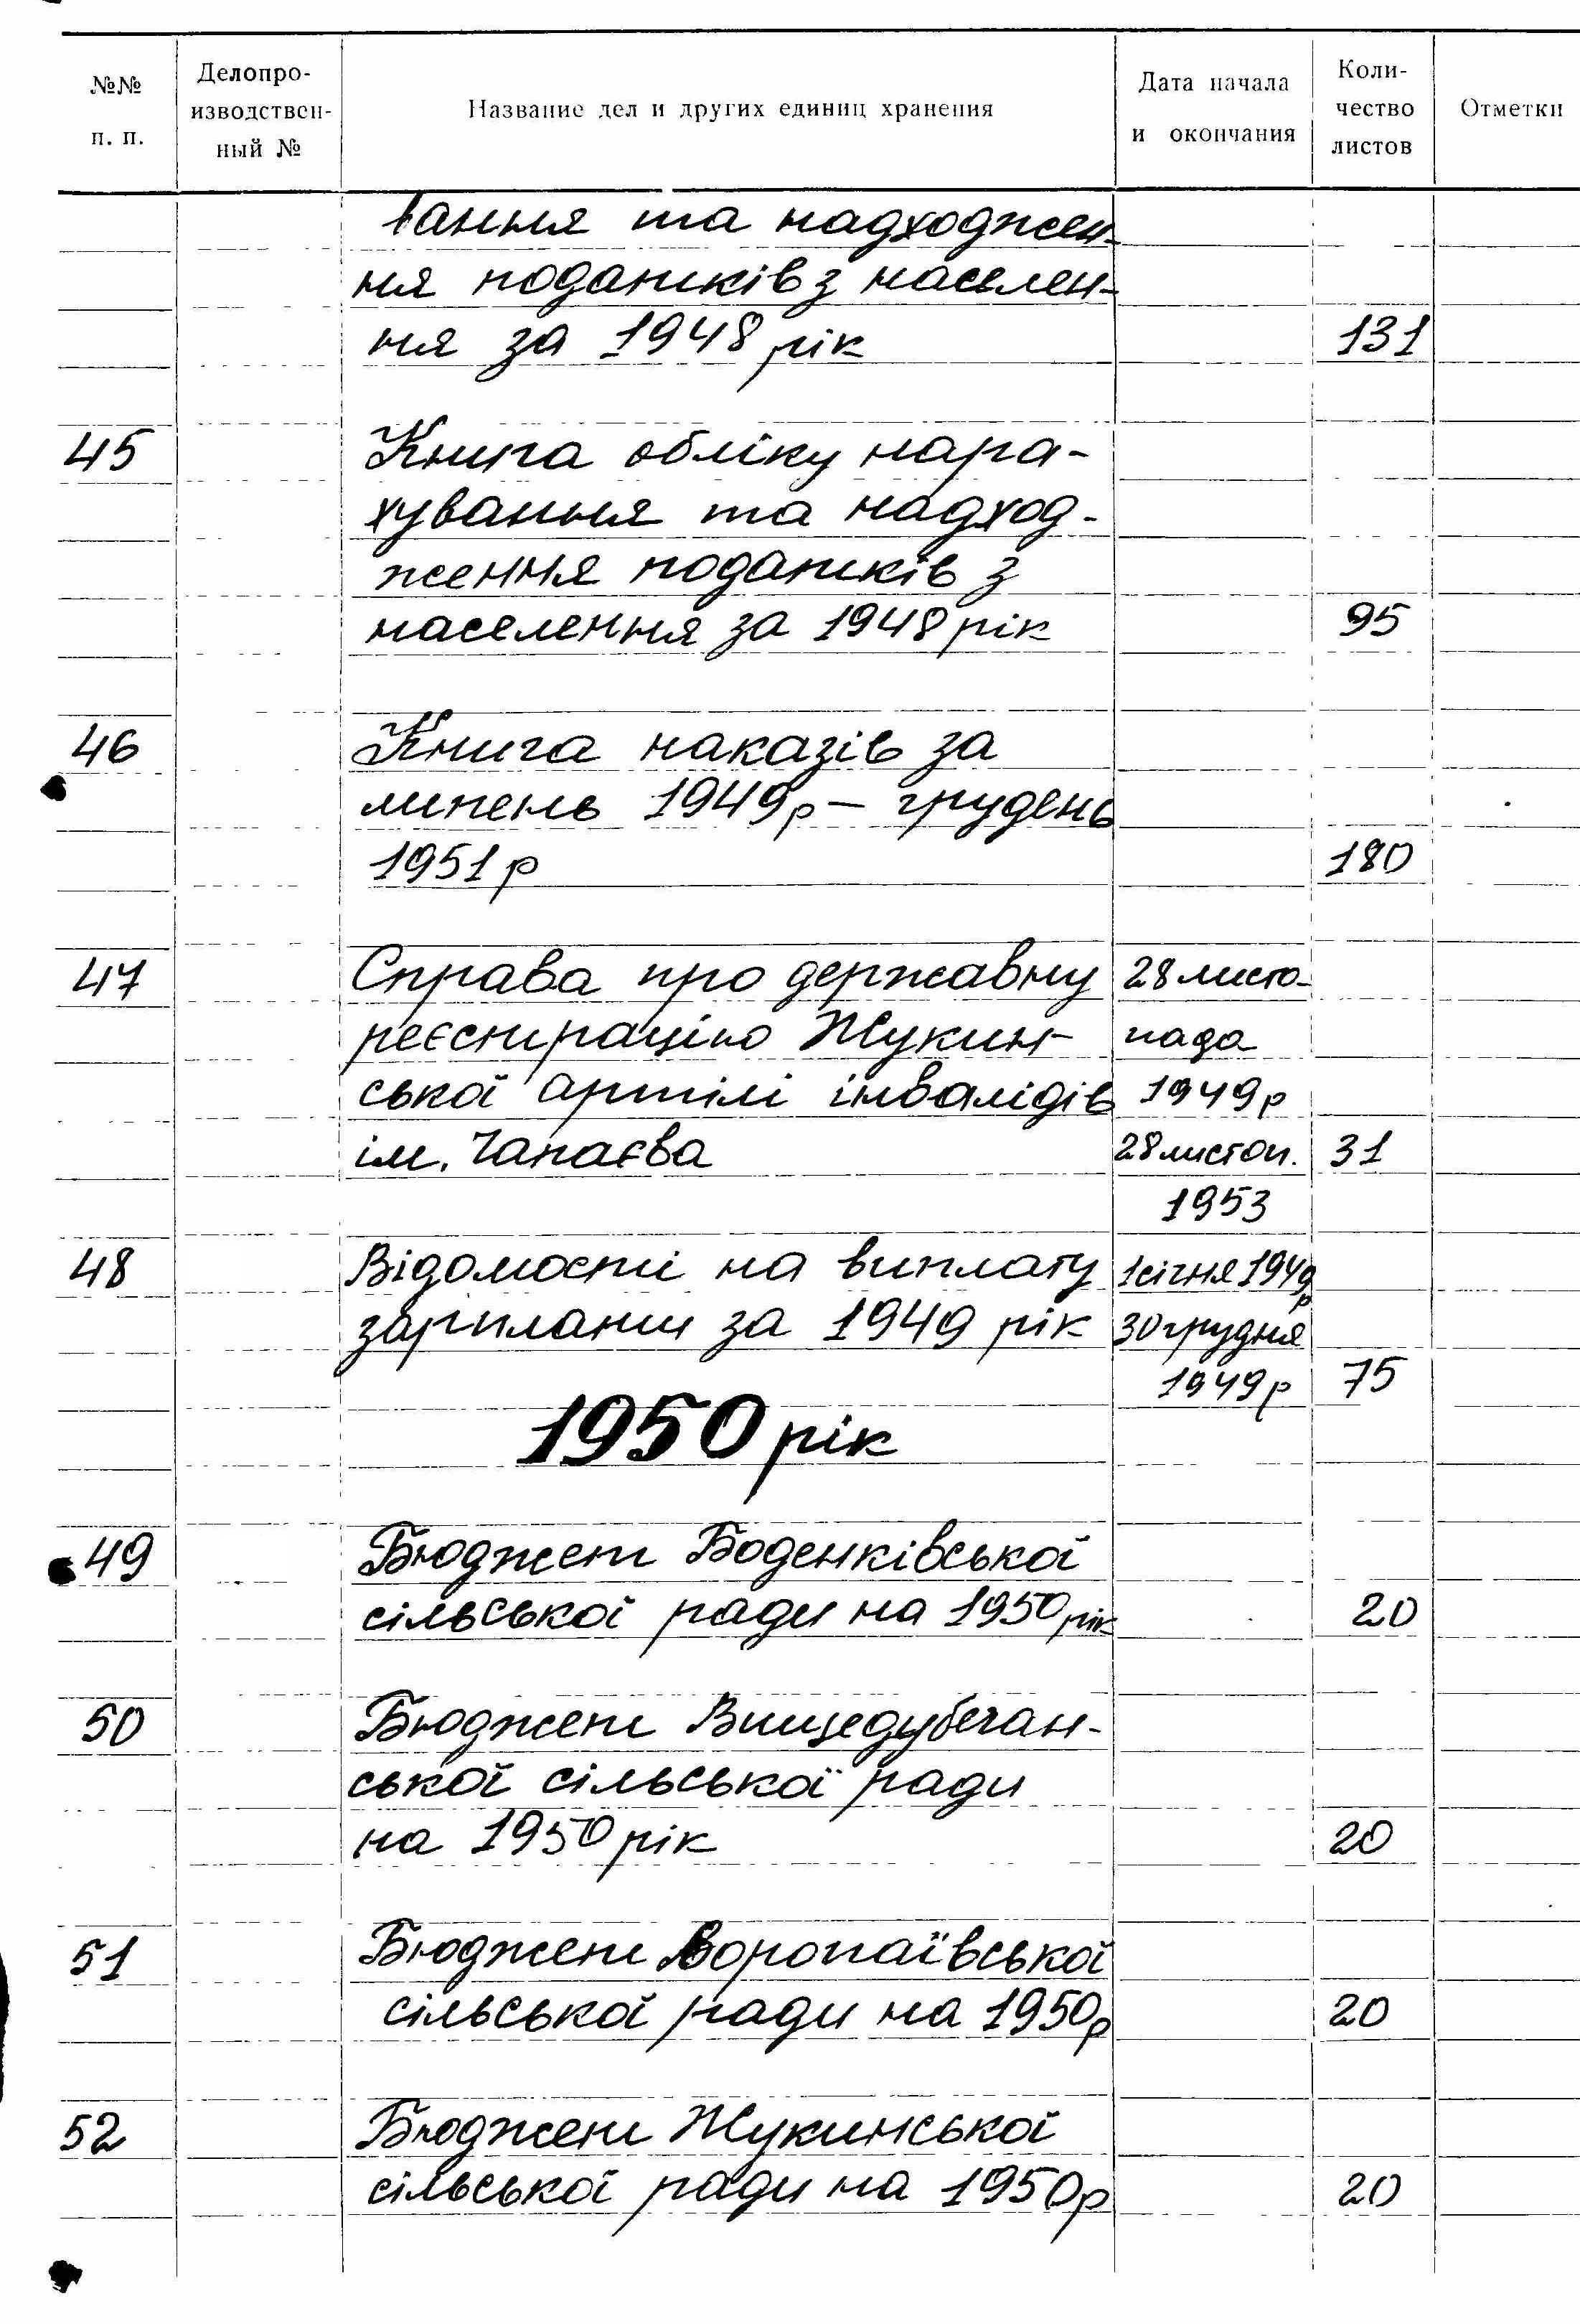 №№ п. п.
Делопро-
изводствен-
ный №
Название дел и других единиц хранения
Дата начала
и окончания
Коли-
чество
листов
Отметки
вання та надходжен-
ня податків з населен-
ня за 1948 рік 131
45 Книга обліку нара-
хування та надход-
ження податків з
населення за 1948 рік 95
46 Книга наказів за
липень 1949р – грудень
1951р 180
47 Справа про державну 28 листо-
реєстрацію Жукин- пада
ської артілі інвалідів 1949р
ім. Чапаєва 28 листоп. 31
1953
48 Відомості на виплату 1 січня 1949р
зарплати за 1949 рік 30 грудня
1949р 75
1950 рік
49 Бюджет Боденківської
сільської ради на 1950 рік 20
50 Бюджет Вищедубечан-
ської сільської ради
на 1950 рік 20
51 Бюджет Воропаївської
сільської ради на 1950р 20
52 Бюджет Жукинської
сільської ради на 1950р 20